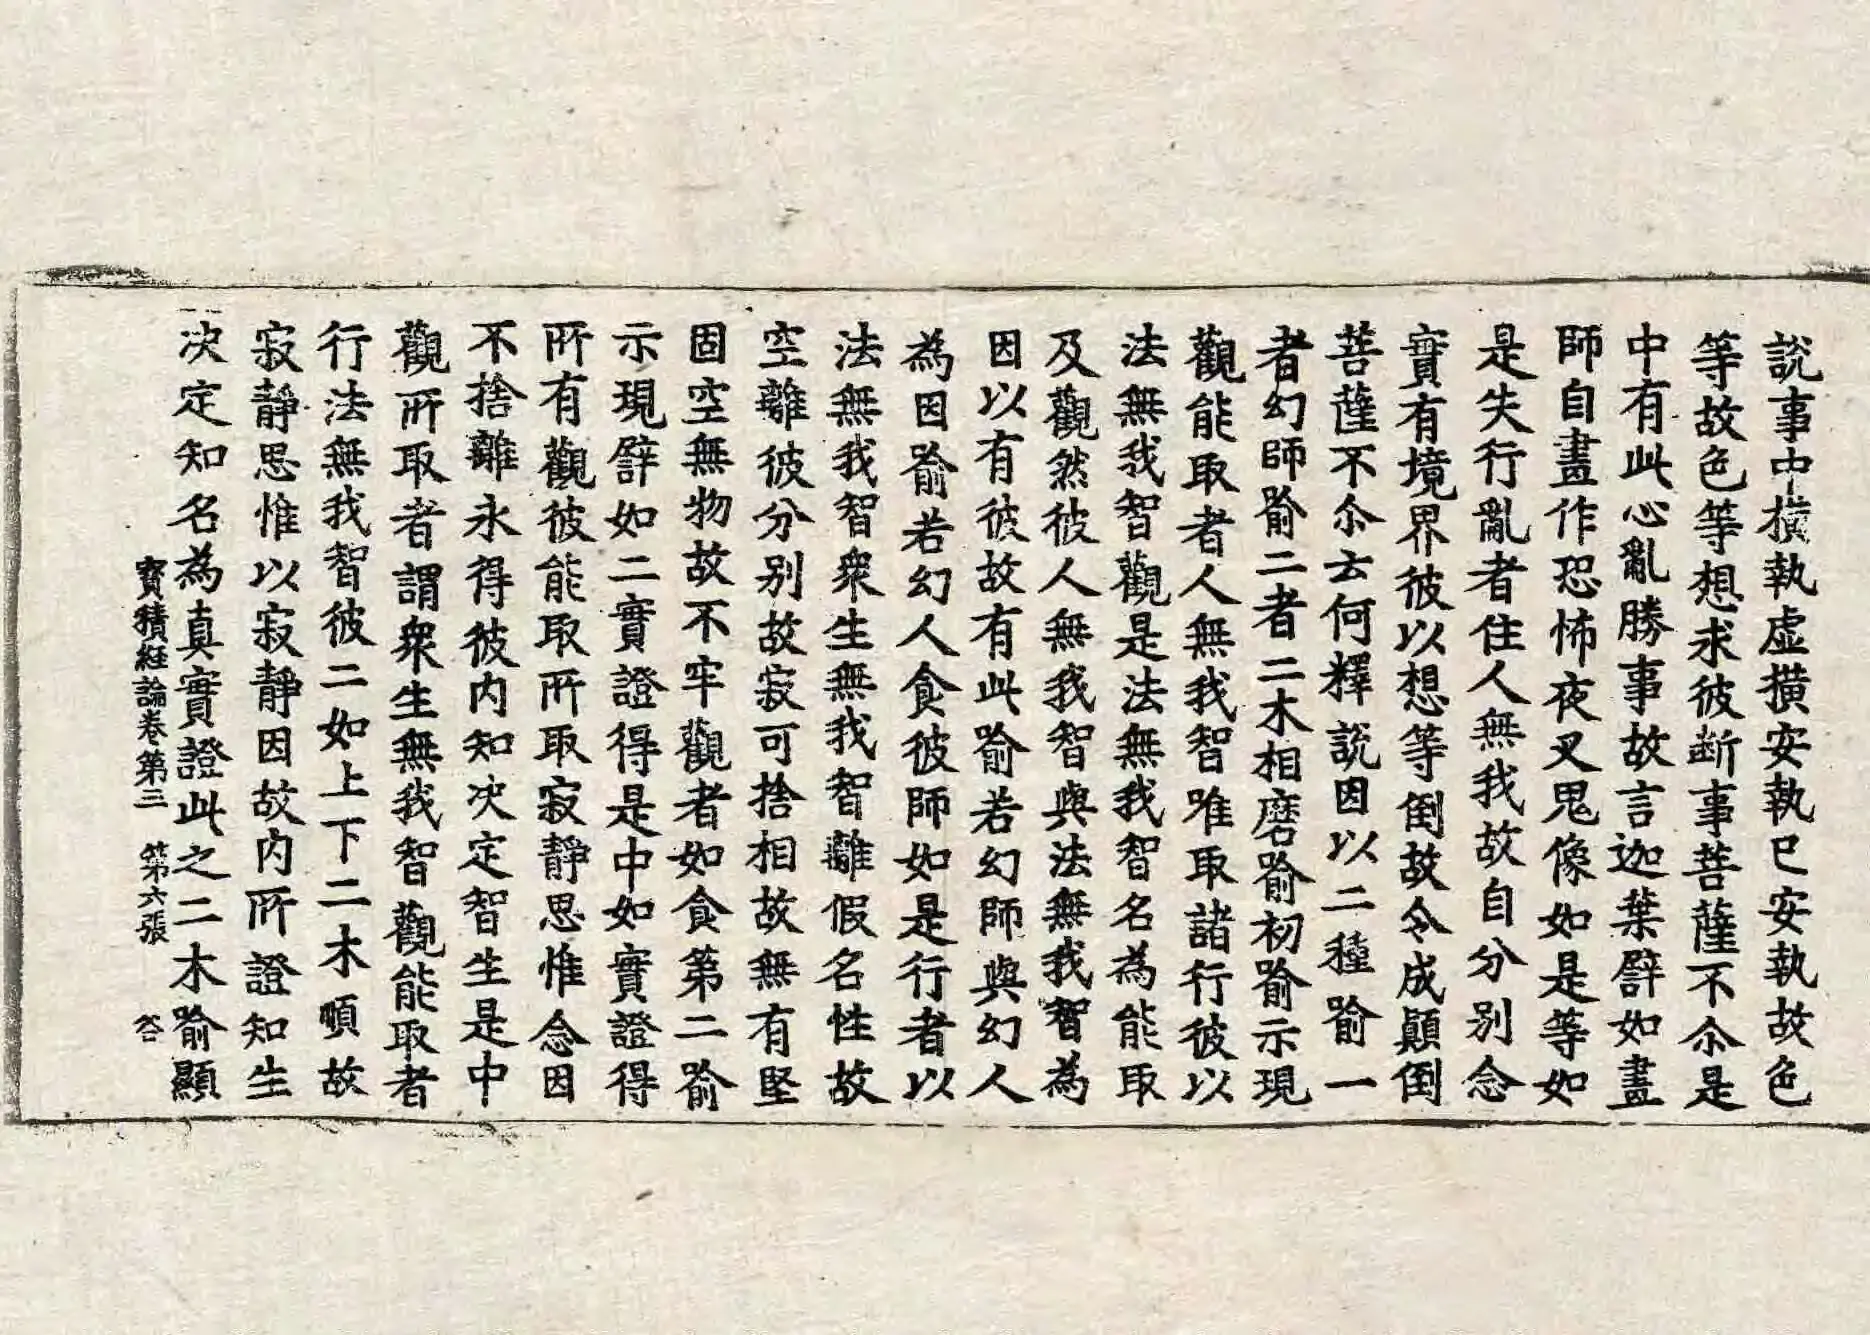 説事中横執虚横安執已安執故色
等故色等想求彼断事菩薩不尒是
中有此心亂勝事故言迦葉譬如畫
師自畫作恐怖夜叉鬼像如是等如
是失行亂者住人無我故自分別念
實有境界彼以想等倒故令成顛倒
菩薩不尒云何釋説因以二種喻一
者幻師喻二者二木相磨喻初喻示現
觀能取者人無我智唯取諸行彼以
法無我智觀是法無我智名為能取
及觀然彼人無我智與法無我智為
因以有彼故有此喻若幻師與幻人
為因喻若幻人食彼師如是行者以
法無我智衆生無我智離假名性故
空離彼分別故寂可捨相故無有堅
固空無物故不牢觀者如食第二喻
示現譬如二實證得是中如實證得
所有觀彼能取所取寂靜思惟念因
不捨離永得彼内知决定智生是中
觀所取者謂衆生無我智觀能取者
行法無我智彼二如上下二木順故
寂靜思惟以寂靜因故内所證知生
决定知名為真實證此之二木喻顯
寳積経論卷第三　第六張　答